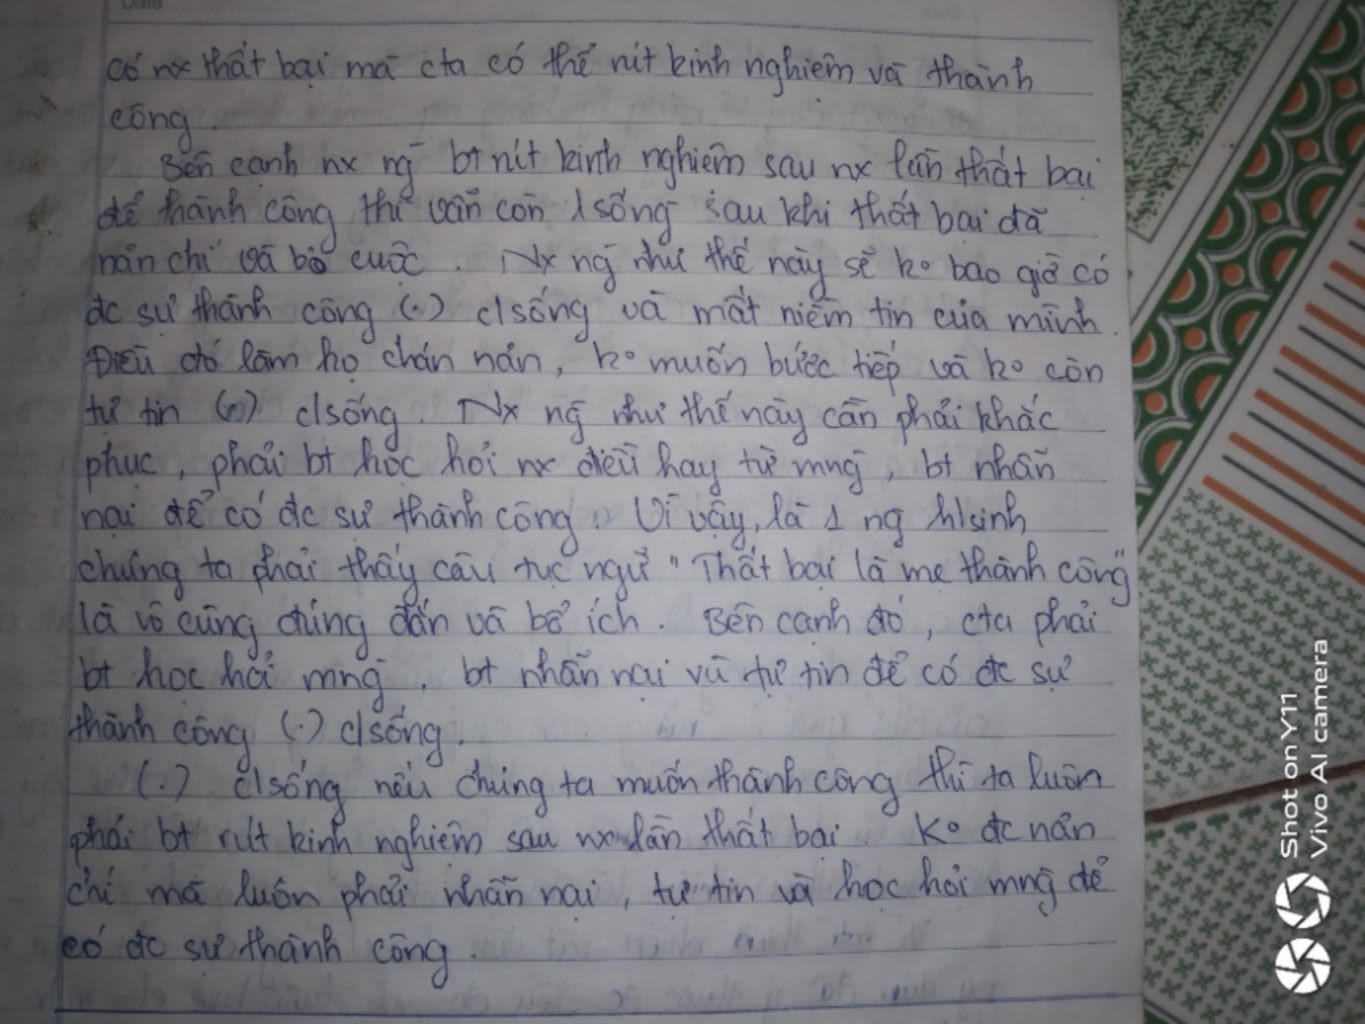 Date
có nx thất bại mà cta có thể rút kinh nghiệm và thành
công.
Bên cạnh nx ng̃ bt rút kinh nghiệm sau nx lần thất bại
để thành công thì vẫn còn 1 số ng̃ sau khi thất bại đã
nản chí và bỏ cuộc. Nx ng̃ như thế này sẽ ko bao giờ có
đc sự thành công (.) c/sống và mất niềm tin của mình.
Điều đó làm họ chán nản, ko muốn bước tiếp và ko còn
tự tin (.) c/sống. Nx ng̃ như thế này cần phải khắc
phục, phải bt học hỏi nx điều hay từ mng̃, bt nhẫn
nại để có đc sự thành công. Vì vậy, là 1 ng h/sinh
chúng ta phải thấy câu tục ngữ "Thất bại là mẹ thành công"
là vô cùng đúng đắn và bổ ích. Bên cạnh đó, cta phải
bt học hỏi mng̃, bt nhẫn nại và tự tin để có đc sự
thành công (.) c/sống.
(.) c/sống nếu chúng ta muốn thành công thì ta luôn
phải bt rút kinh nghiệm sau nx lần thất bại. Ko đc nản
chí mà luôn phải nhẫn nại, tự tin và học hỏi mng̃ để
có đc sự thành công.
Shot on Y11
Vivo AI camera